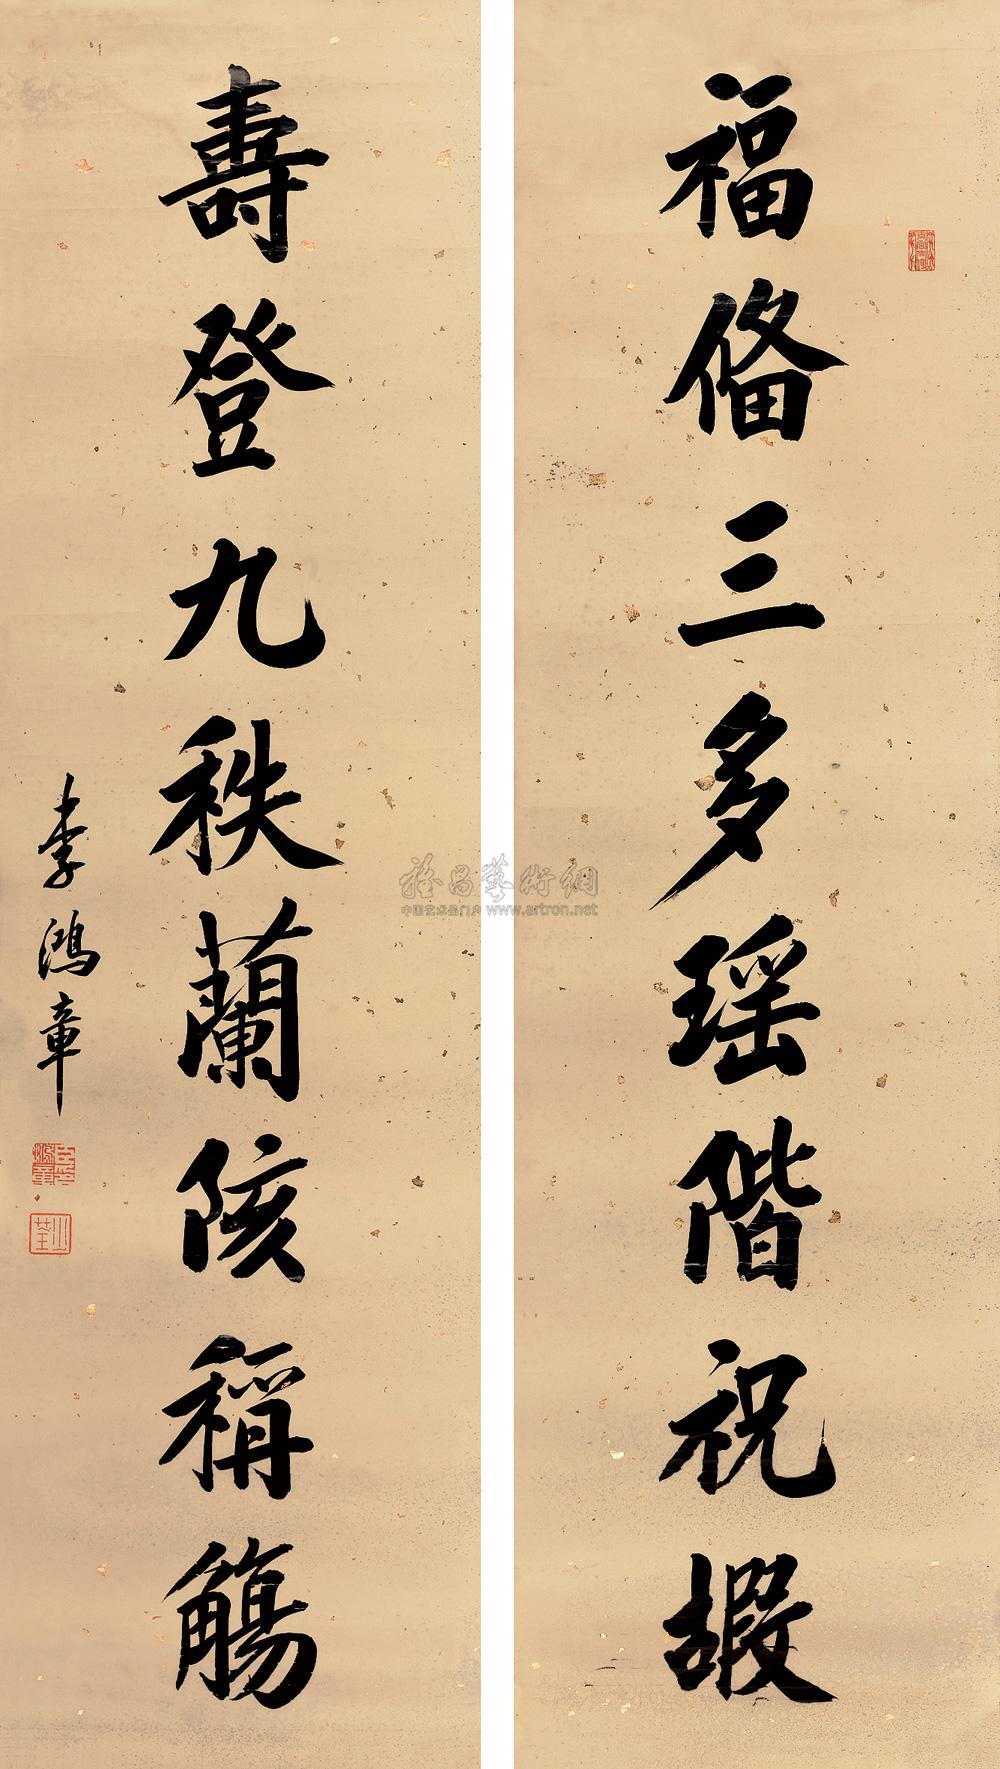 福俻三多瑶階祝嘏
壽登九秩蘭陔稱觴
李鴻章
雅昌藝術網
中国艺术品门户 www.artron.net